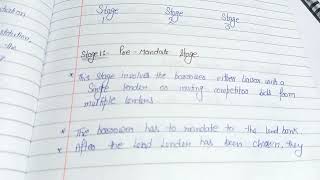 dation
stitution,
the
Stage Stage Stage
1 2 3
Stage 1:- Pre-Mandate Stage.
* This Stage involves the borrower either liaise with a
Single lender or inviting competitive bids from
multiple lenders
* The borrower has to mandate to the lead bank
* After the lead Lender has been chosen, they